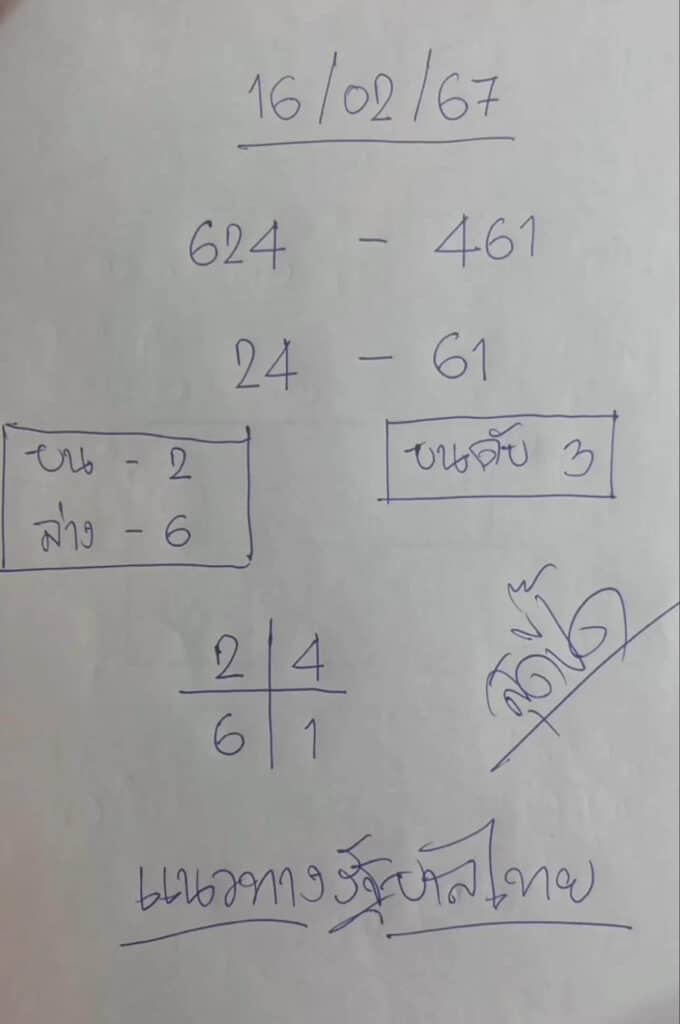 16/02/67
624 - 461
24 - 61
บน - 2
ล่าง - 6
บนดับ 3
2 4
6 1
แนวทางรัฐบาลไทย